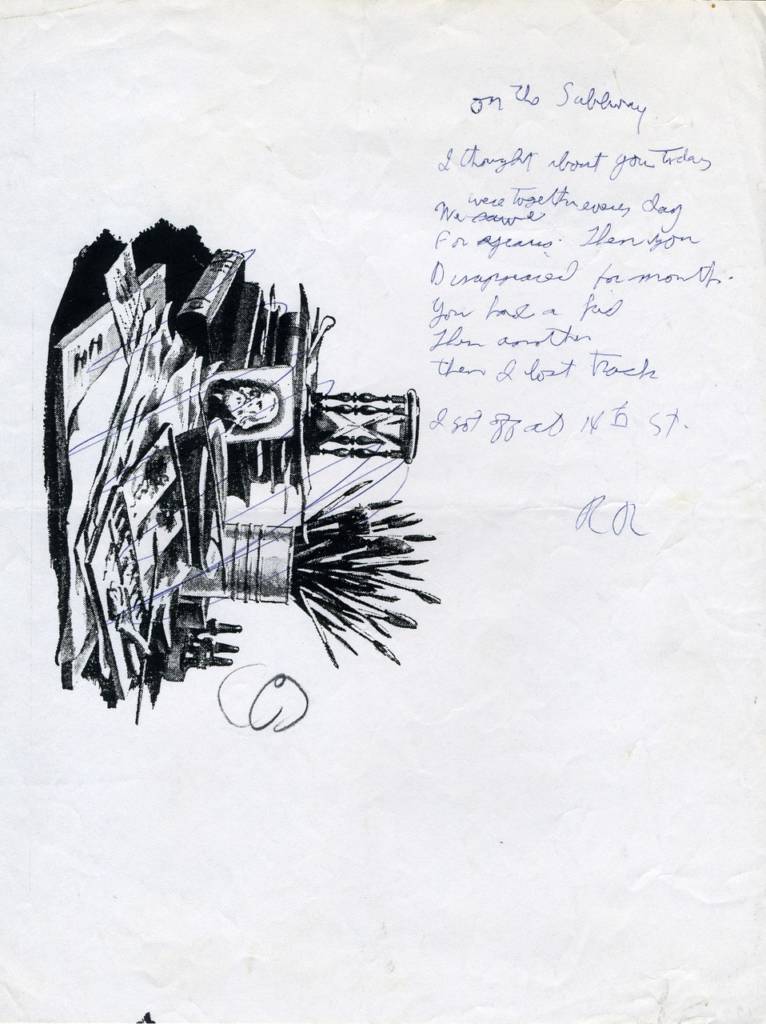 on the Subway
I thought about you today
were together every day
We
For years. Then you
Disappeared for months.
You had a
Then another
then I lost track
I got off at 14th St.
RR